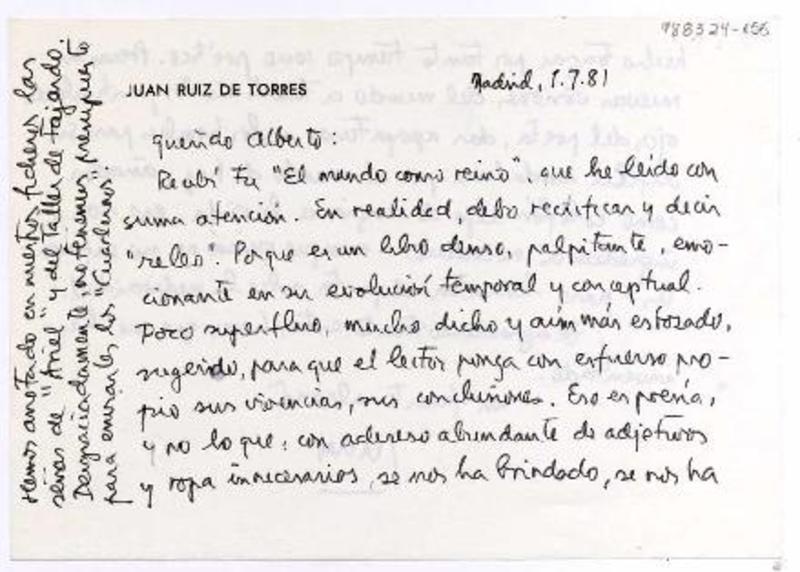 988324-156
JUAN RUIZ DE TORRES
Madrid, 1.7.81
Querido Alberto:
Recibí tu "El mundo como reino", que he leído con
suma atención. En realidad, debo rectificar y decir
"releo". Porque es un libro denso, palpitante, emo-
cionante en su evolución temporal y conceptual.
Poco superfluo, mucho dicho y aún más esbozado,
sugerido, para que el lector ponga con esfuerzo pro-
pio sus vivencias, sus conclusiones. Eso es poesía,
y no lo que, con aderezo abundante de adjetivos
y ropa innecesarios, se nos ha brindado, se nos ha
Hemos anotado en nuestros ficheros las
señas de "Ariel" y del Taller de Fajardo.
Desgraciadamente, no tenemos presupuesto
para enviarles los Cuadernos